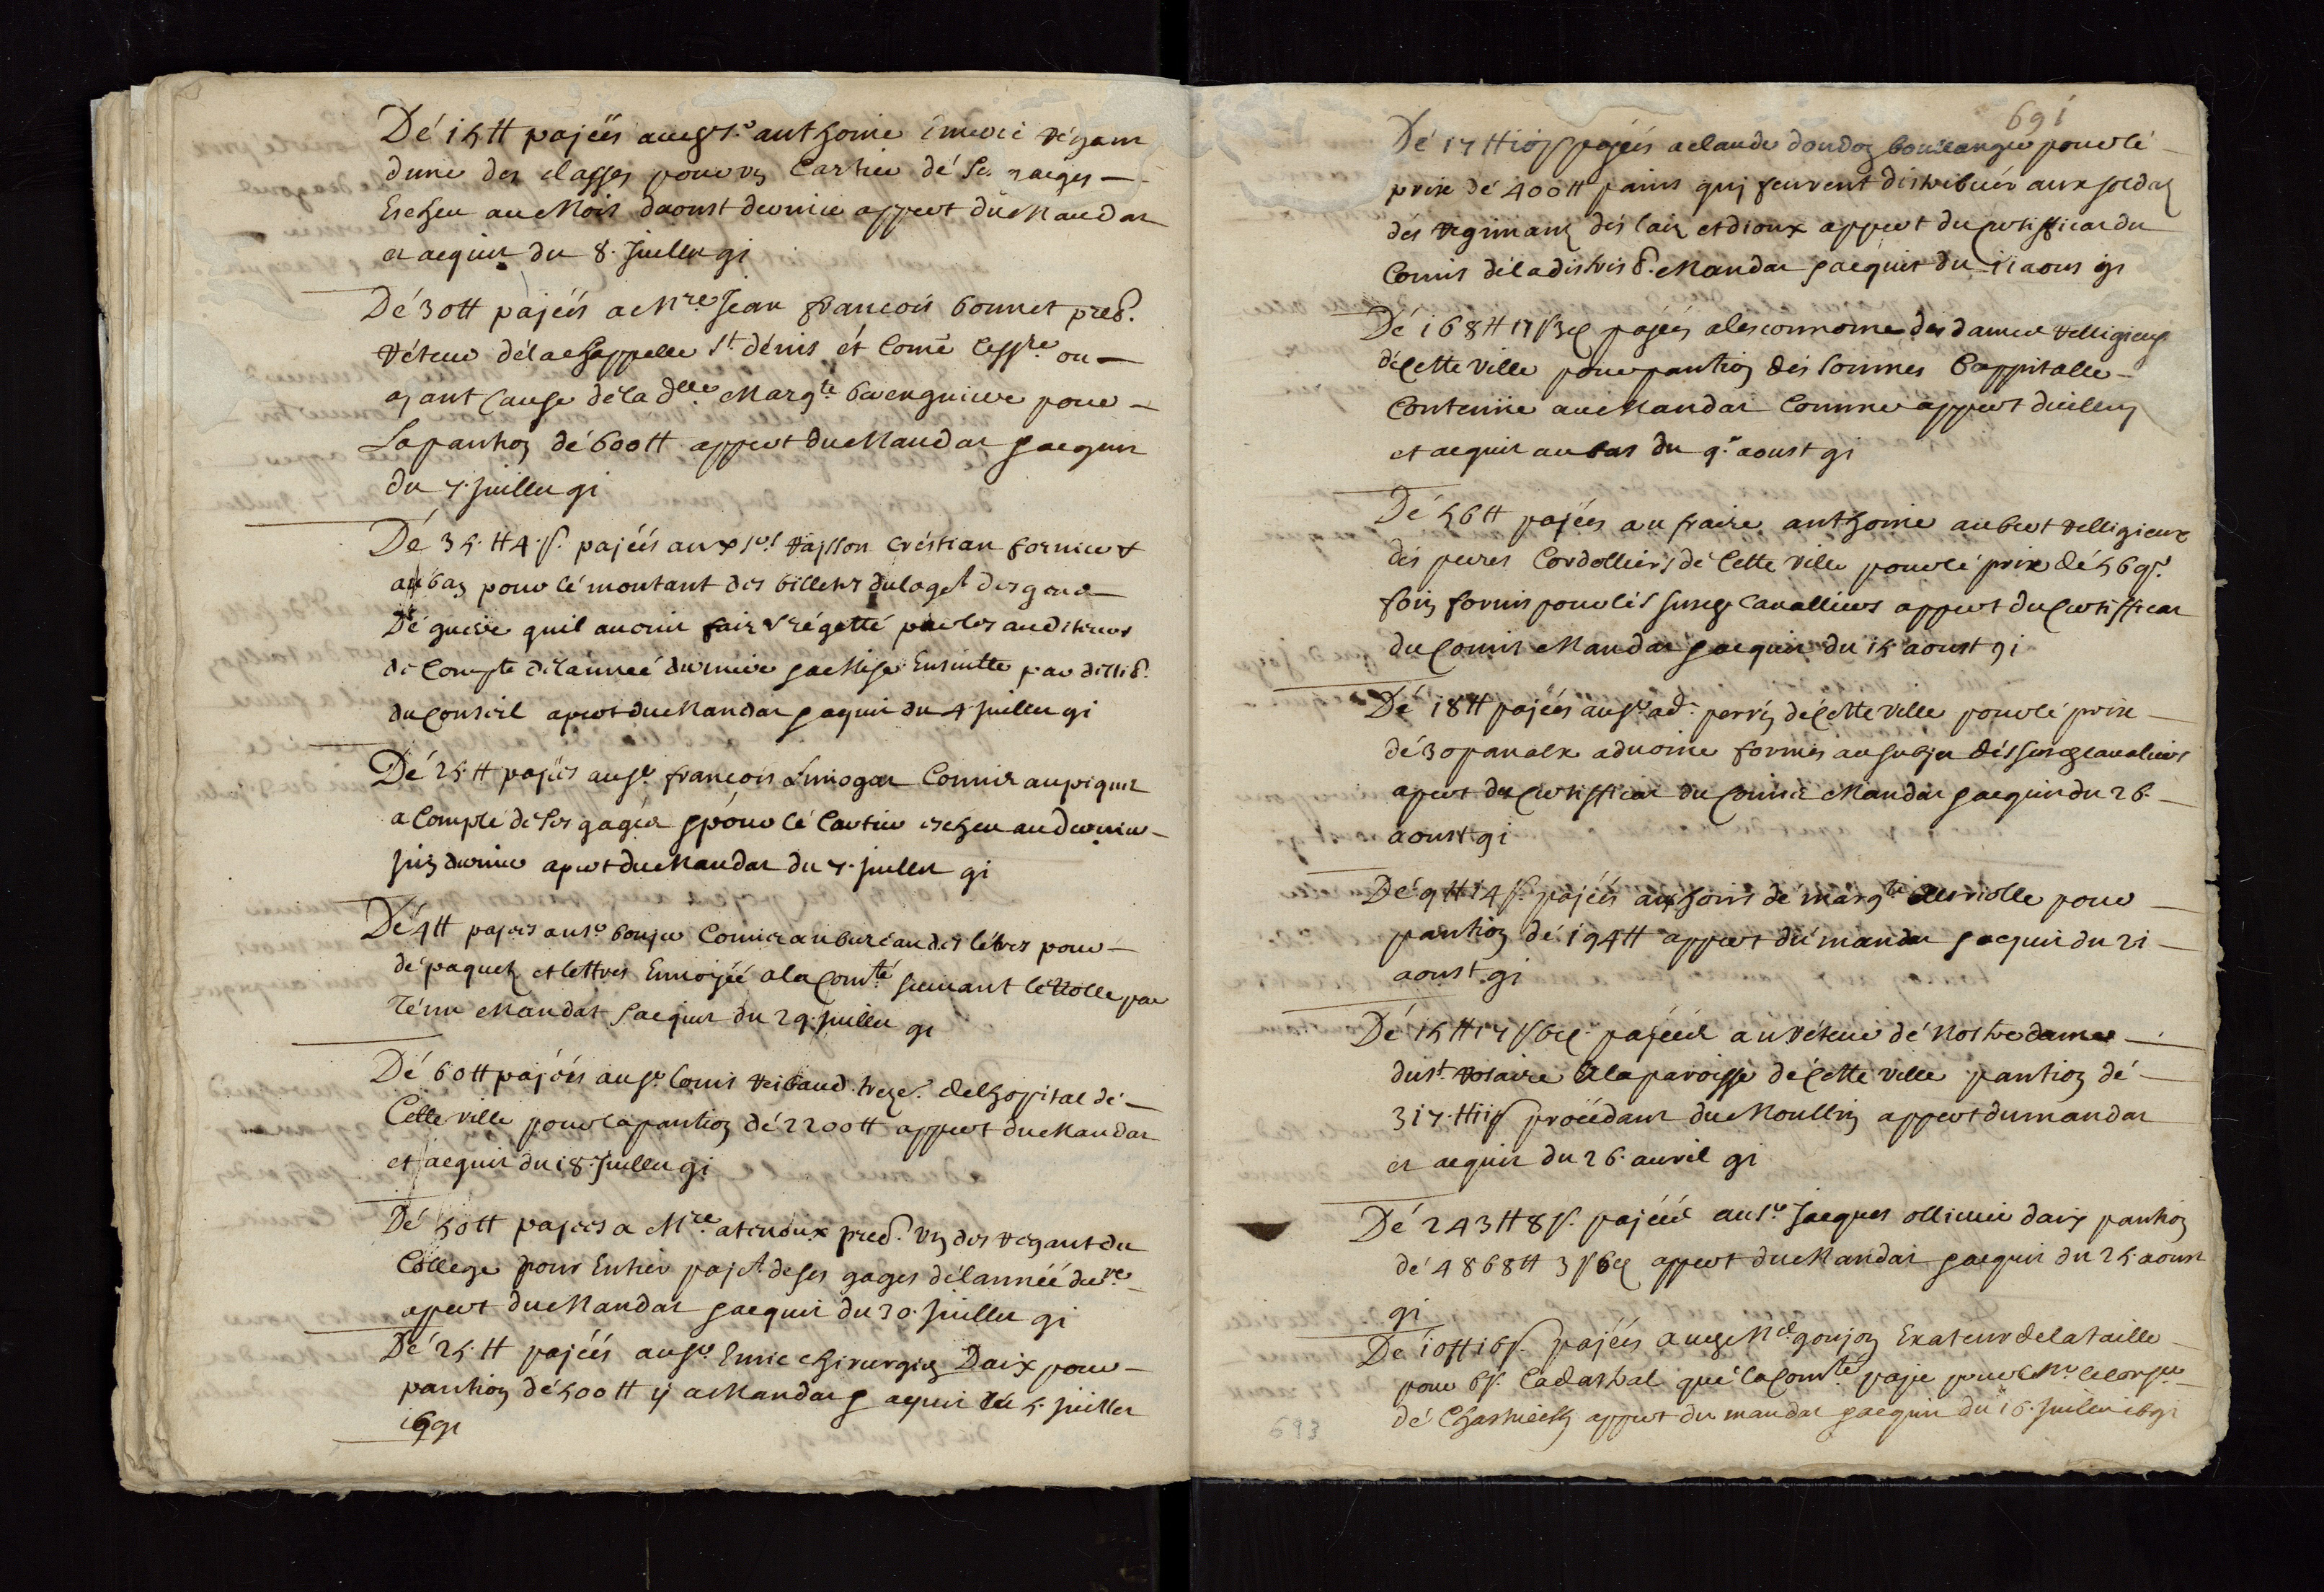 Dé 15 tt pajéés au sr. anthoine Emeric régant
dune des classes pour un Cartier dé Ses gages
Escheu au Mois daoust dernier appert du Mandat
et acquit du 8. Juillet 91
Dé 30 tt pajéés a Mre Jean françois bonnet preb.
réteur délachappelle St dénis et Comé Cessre. ou
ayant Cause déla dlle Margte. berenguiere pour
La pantion dé 600 tt appert du Mandat & acquit
du 7. Juillet 91
Dé 35. tt 4. s. pajéés aux srs vaisson Crestian fornier &
auban pour lé montant des billets du loget des gens
dé guerre quil auoint fait & régetté par les auditeurs
de Compte délanneé derniere & admise Ensuitte par dellib.
du Conseil apert du Mandat & aquit du 4. Juillet 91
Dé 25. tt pajéés au sr. françois Commis au piquet
a Compte dé Ses gages & pour lé Cartier escheu au dernier
juin dernier apert du Mandat du 7. Juillet 91
Dé 4 tt pajéés au sr bonjer Commis au buréau dés létres pour
dé paquets et lettres Enuoyéé ala Comté suiuant le Rolle par
ténu Mandat & acquit du 29. Juillet 91
Dé 60 tt pajéés au sr. Louis Reibaud trezer. delhopital dé
Cette ville pour la pantion dé 2200 tt appert du Mandat
et acquit du 18. Juillet 91
Dé 50 tt pajéés a Mre. atenoux preb. un des régant du
College pour Entier pajet. de ses gages délannéé derre.
apert du Mandat & acquit du 30. Juillet 91
Dé 25. tt pajéés au sr. Emeric chirurgien Daix pour
pantion dé 500 tt y a Mandat & acquit du 5. juillet
1691
691
Dé 17 tt 10 s pajéés a claude dondon boulanger pour lé
prix dé 400 tt pains quj feurent distribués aux soldats
dés regimants dés laix et dioux appert du Certifficat du
Comis déla distrib. Mandat & acquit du 11 aoust 91
Dé 168 tt 17 s 3 d pajéés alesconnome des dames relligieuses
dé Cette ville pour pantion dés sommes Cappitalle
Contenue au Mandat Comme appert dicelluy
et acquit au bas du 9e. aoust 91
Dé 56 tt pajéés au fraire anthoine aubert relligieux
dés peres Cordolliers dé Cette ville pour lé prix dé 56 qx.
foin fornis pour lés susdts Cavalliers appert du Certifficat
du Comis Mandat & acquit du 15 aoust 91
Dé 18 tt pajéés au sr. ad. perrin dé Cette ville pour lé prix
dé 30 panaux aduoine fornies au subjet dés susdts Cavaliers
apert du Certifficat du Comis Mandat & acquit du 26.
aoust 91
Dé 9 tt 14 s. pajéés aux hoirs dé margte. Auriolle pour
pantion dé 194 tt appert du mandat & acquit du 21
aoust 91
Dé 15 tt 17 s 6 d. pajéés au réteur dé Nostre dame
du st rosaire Ala paroisse dé Cette ville pantion dé
317. tt 11 s procedant du Moullin appert du mandat
et acquit du 26. auril 91
Dé 243 tt 8 s. pajéés au sr. Jacques ollivier daix pantion
dé 4868 tt 3 s 6 d appert du Mandat & acquit du 25. aoust
91
Dé 10 tt 16 s. pajéés a goujon Exateur dela taille
pour 6 s. Cadastral que la Comté paje pour
dé appert du mandat & acquit du 16. Juillet 1691
693